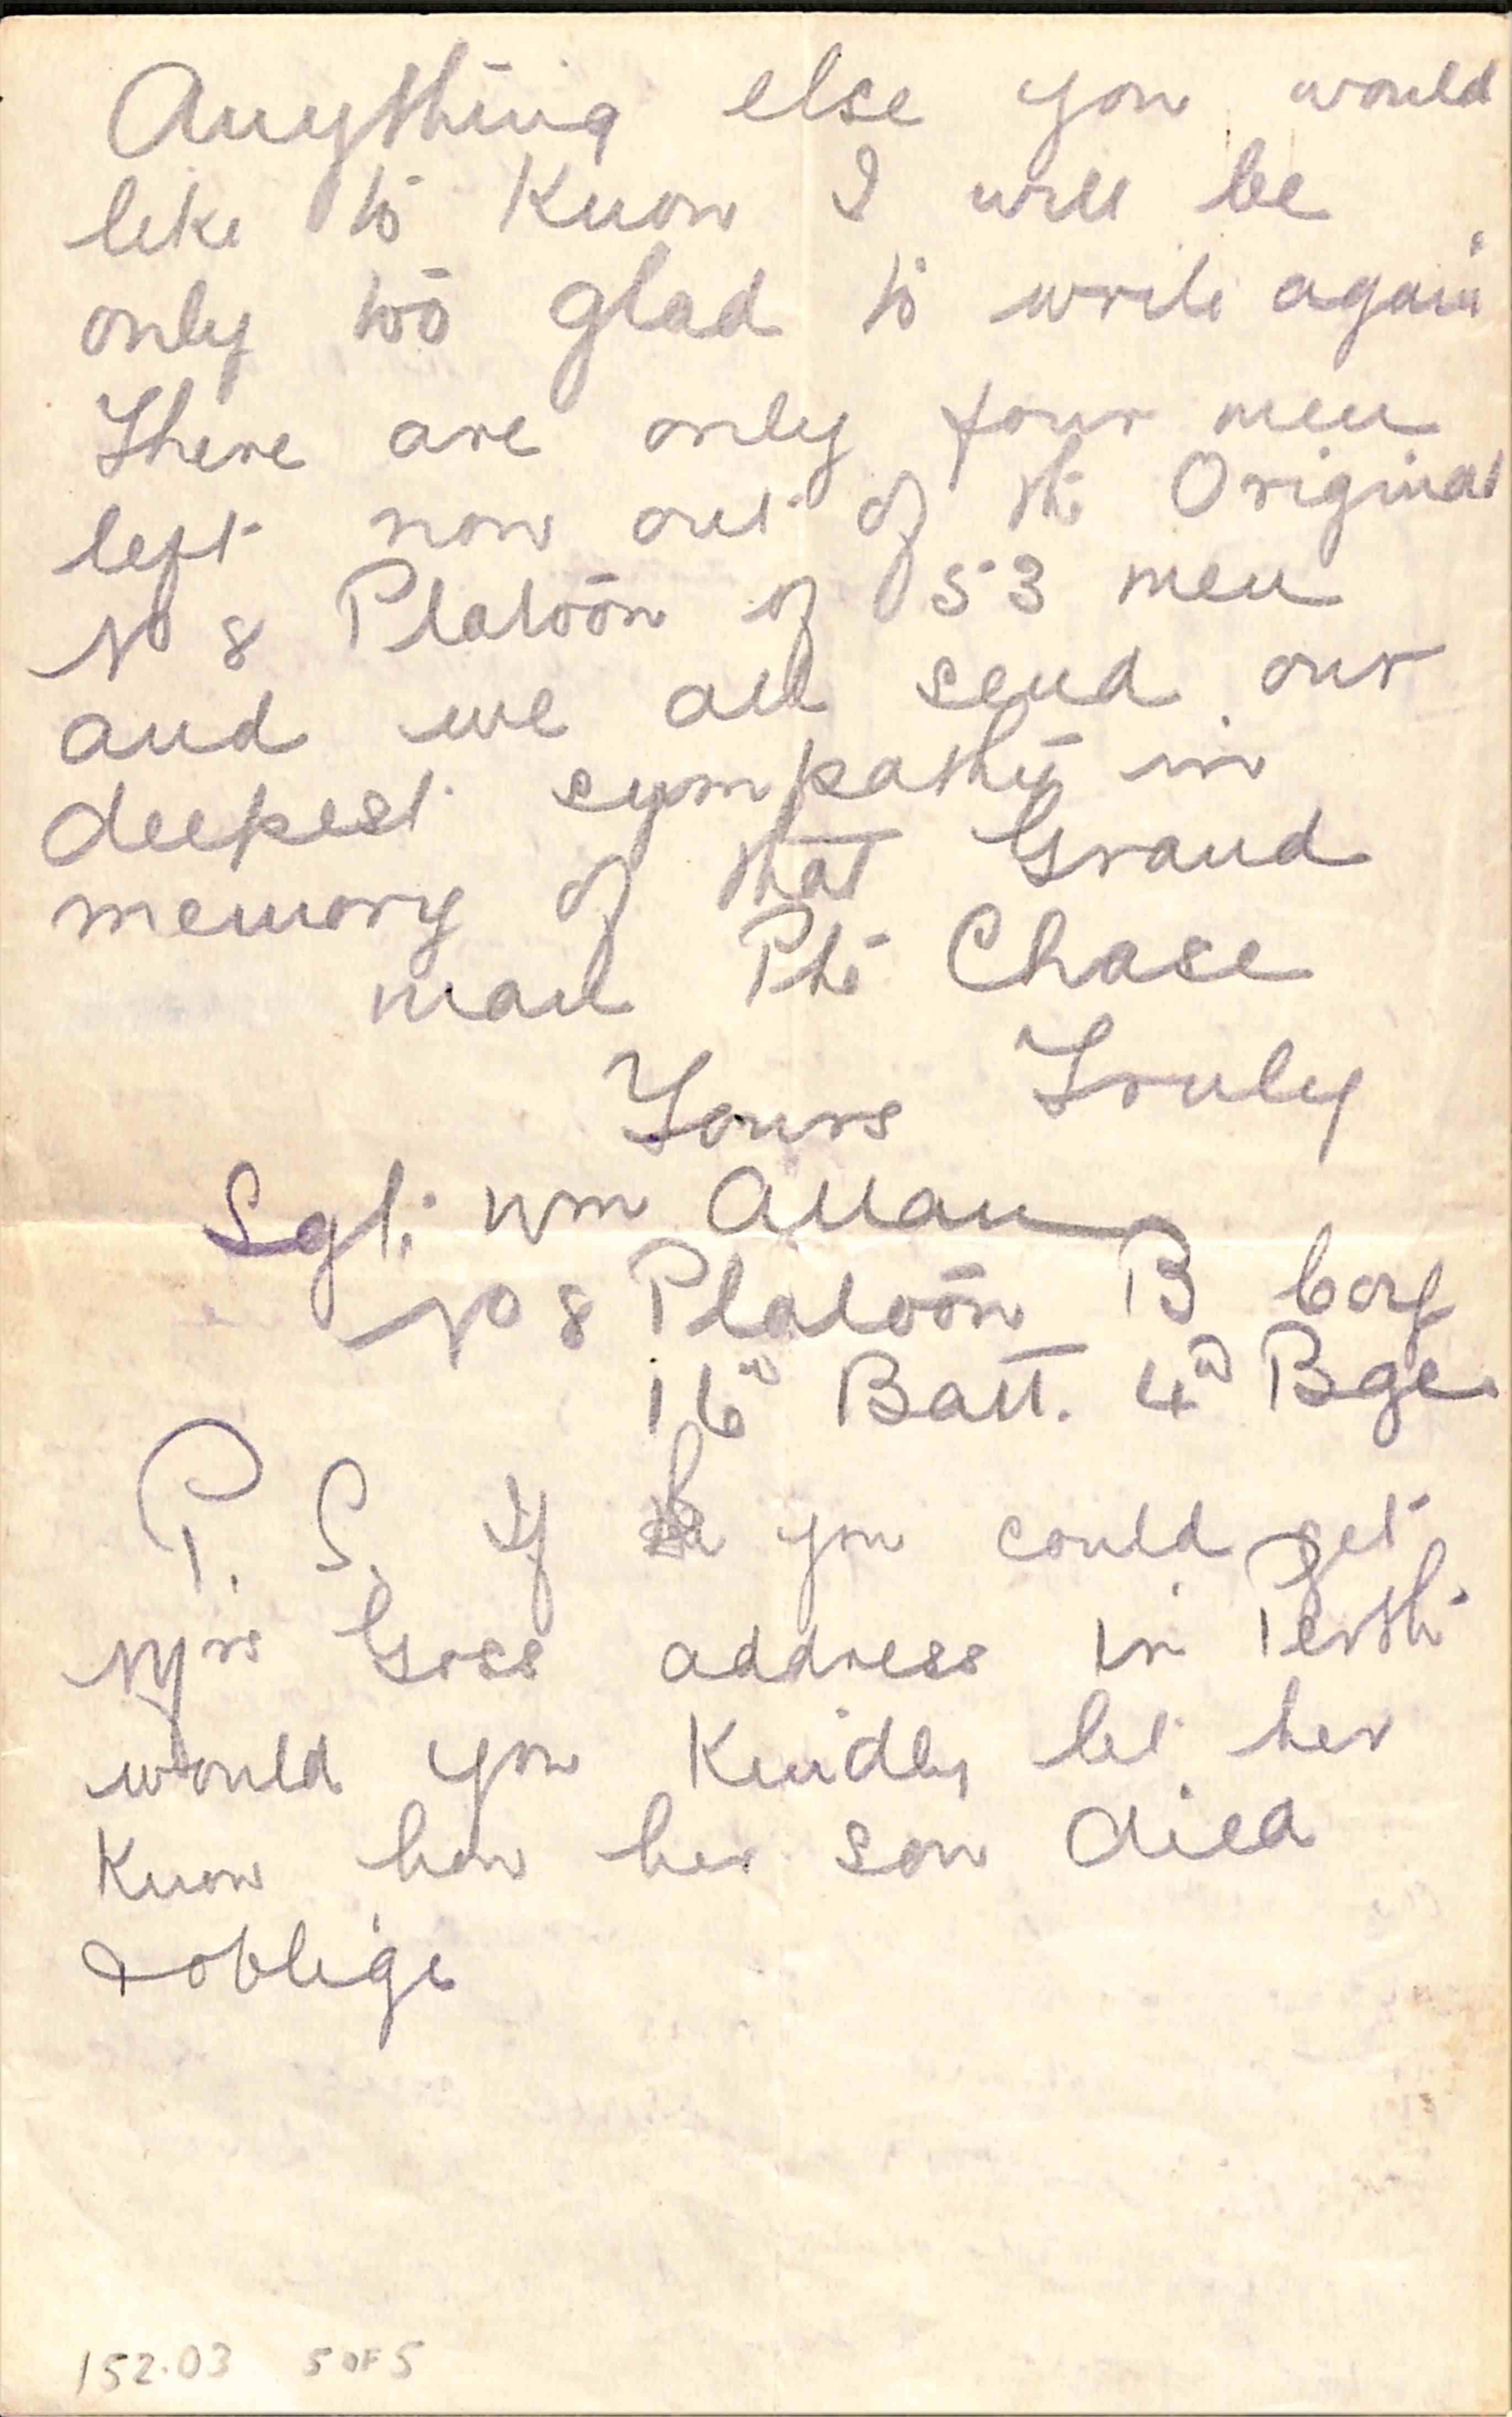 Anything else you would
like to Know I will be
only too glad to write again
There are only four men
left now out of the Original
No 8 Platoon of 53 men
and we all send our
deepest sympathy in
memory of that Grand
man Pte Chase
Yours Truly
Sgt. Wm Allan
No 8 Platoon B Coy
16th Batt. 4th Bge.
P.S. If you could get
Mrs address in Perth
would you Kindly let her
Know how her son died
& oblige
152.03 5 OF 5